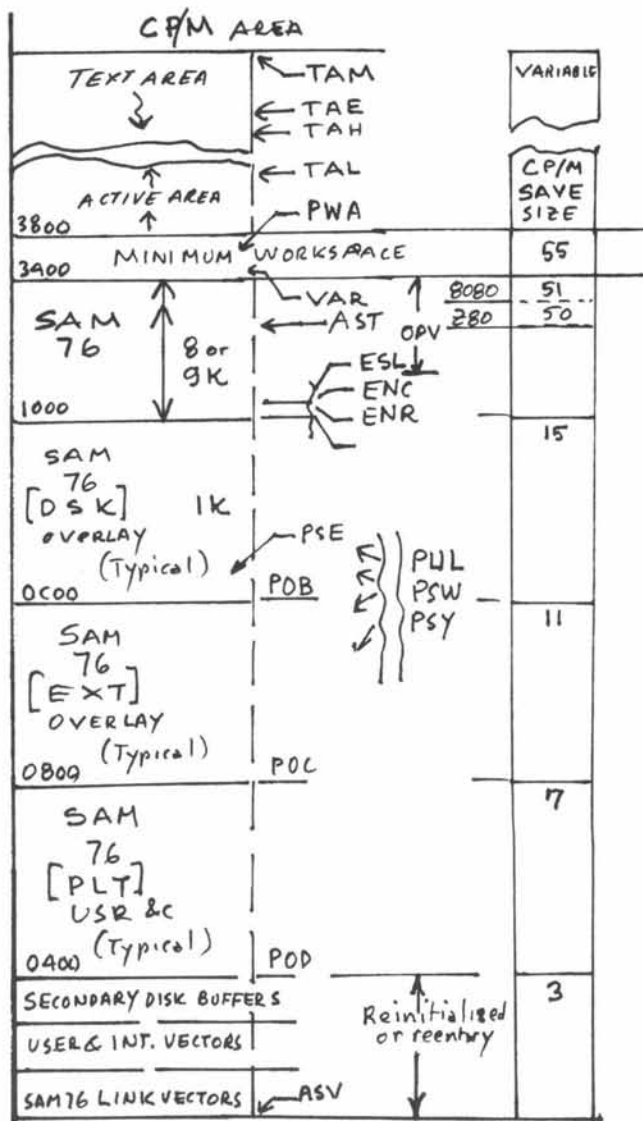 CP/M AREA
TEXT AREA
TAM
TAE
TAH
TAL
ACTIVE AREA
3800
PWA
MINIMUM WORKSPACE
3400
VAR
AST
OPV
SAM
76
8 or
9K
ESL
ENC
ENR
1000
SAM
76
[DSK]
1K
OVERLAY
(Typical)
PSE
0C00
POB
PUL
PSW
PSY
SAM
76
[EXT]
OVERLAY
(Typical)
0800
POC
SAM
76
[PLT]
USR &c
(Typical)
0400
POD
SECONDARY DISK BUFFERS
USER & INT. VECTORS
SAM76 LINK VECTORS
ASV
Reinitialized
or reentry
VARIABLE
CP/M
SAVE
SIZE
55
8080
51
Z80
50
15
11
7
3